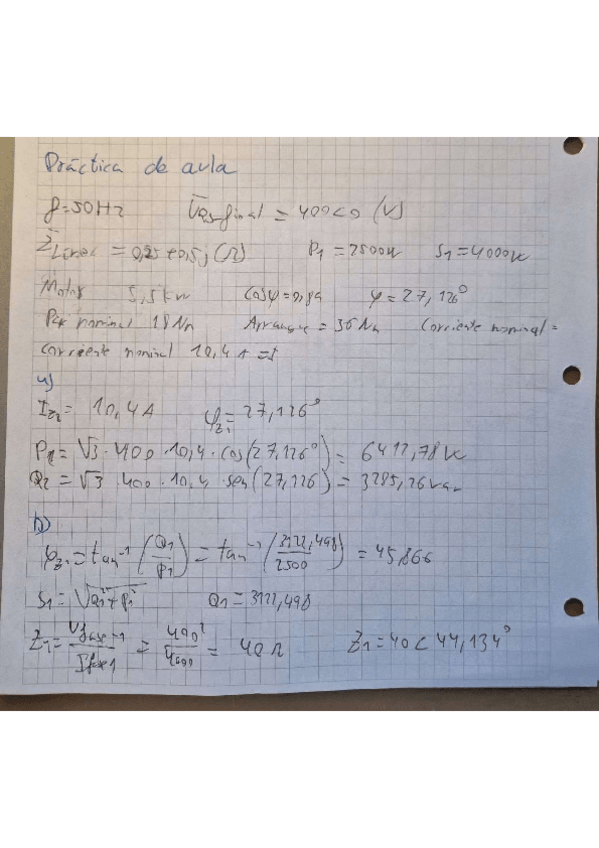 Práctica de aula
f=50Hz Ū final = 400<0 (V)
Z̄ Linea = 0,25+0,5j (Ω) P1 = 2500w S1 = 4000w
Motor 5,5kw cosφ=0,89 φ=27,126°
Par nominal 18Nm Arranque = 36Nm Corriente nominal =
Corriente nominal 10,4A
a)
IZ2 = 10,4A φZ2 = 27,126°
P2 = √3 · 400 · 10,4 · cos(27,126°) = 6412,78w
Q2 = √3 · 400 · 10,4 · sen(27,126) = 3285,26var
b)
φZ1 = tan⁻¹(Q1/P1) = tan⁻¹(3122,498/2500) = 45,866
S1 = √(Q1²+P1²) Q1 = 3122,498
Z1 = Vfase-1/Ifase1 = 400²/4000 = 40Ω Z1 = 40<44,134°